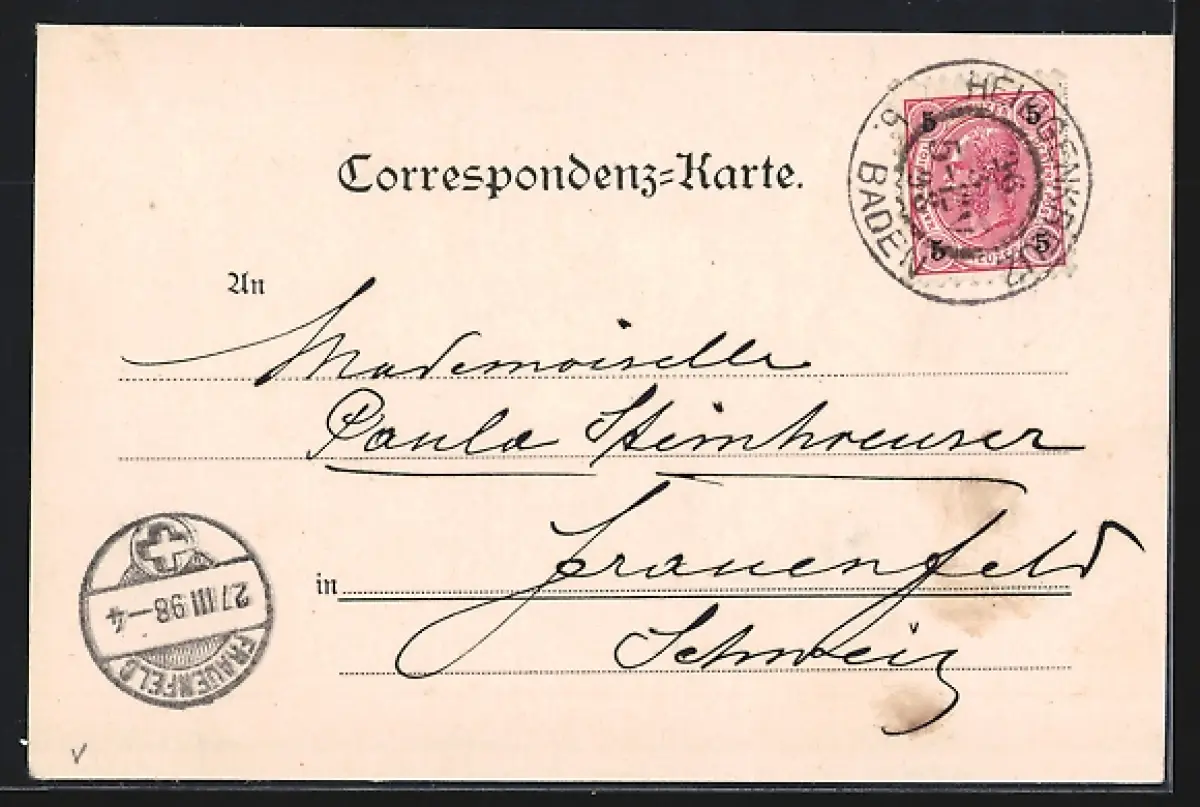 Correspondenz-Karte.
HEILIGENKREUZ
BADEN
5 5
5 5
An
Mademoiselle
Paula Steinhreuser
in Frauenfeld
Schweiz
27 III 98–4
FRAUENFELD